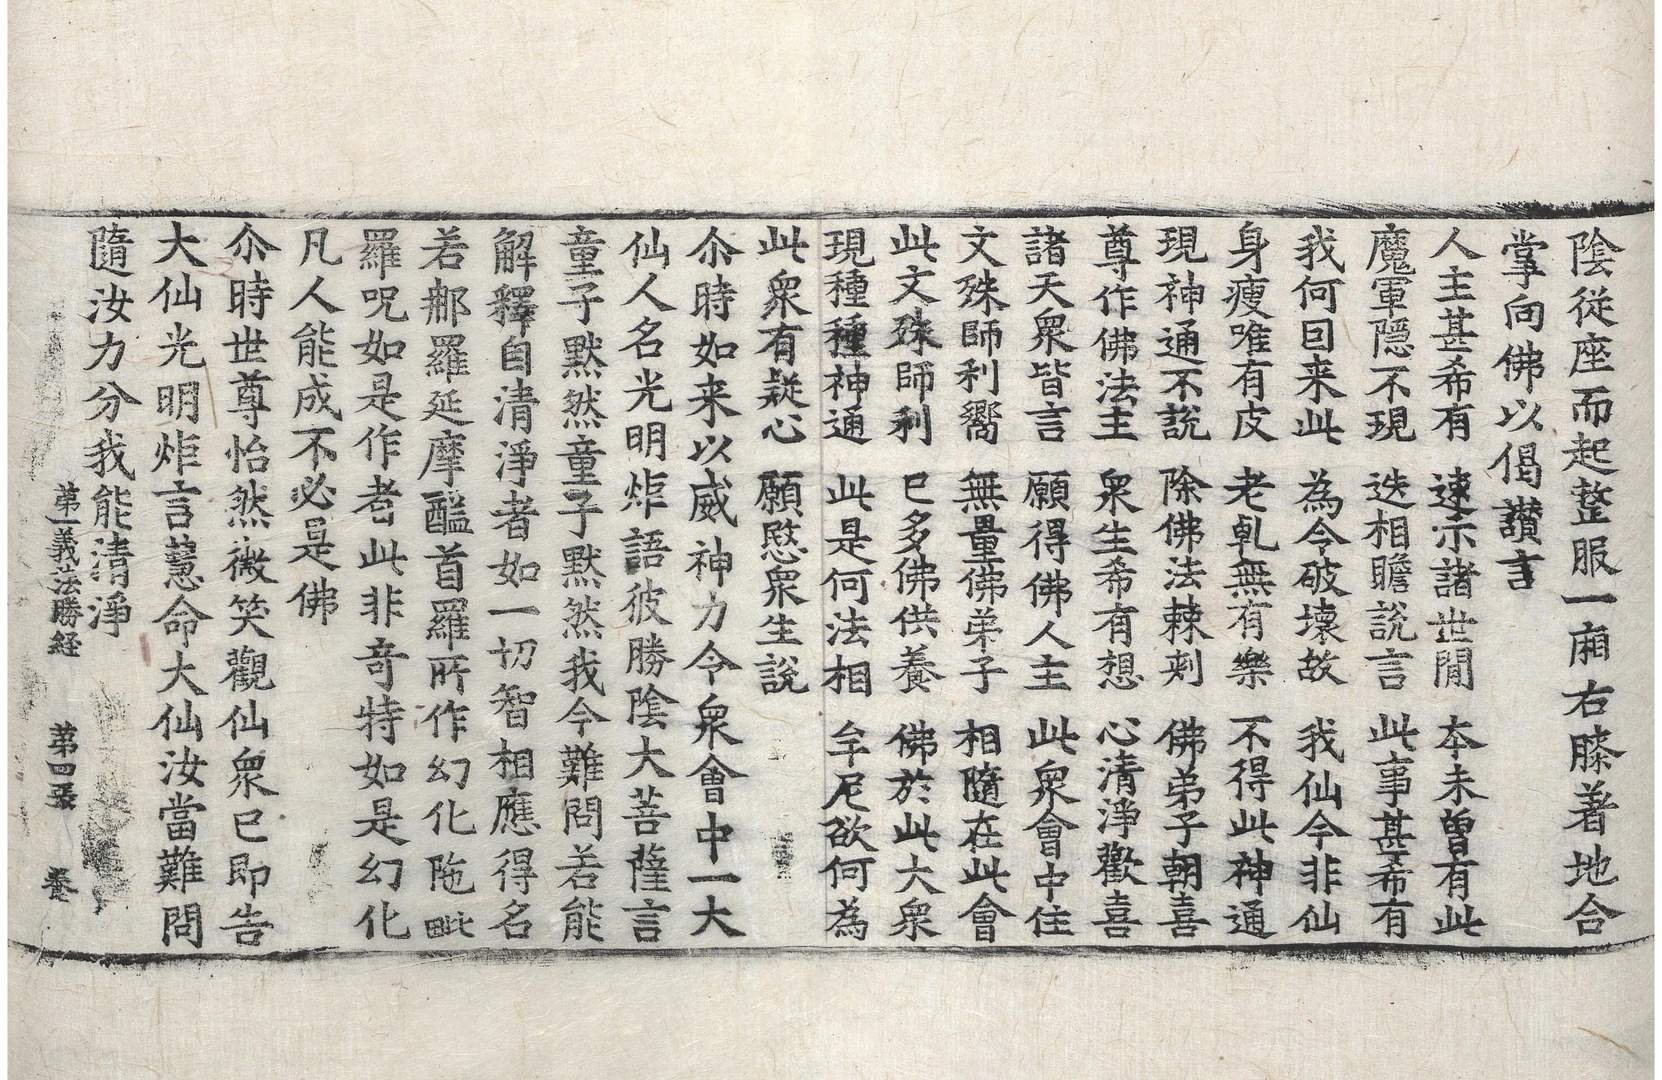 陰従座而起整服一廂右膝著地合
掌向佛以偈讃言
人主甚希有　速示諸世間　本未曽有此
魔軍隱不現　迭相瞻説言　此事甚希有
我何因来此　為今破壊故　我仙今非仙
身瘦唯有皮　老乹無有樂　不得此神通
現神通不說　除佛法棘刺　佛弟子朝喜
尊作佛法主　衆生希有想　心清淨歡喜
諸天衆皆言　願得佛人主　此衆會中住
文殊師利嚮　無量佛弟子　相隨在此會
此文殊師利　已多佛供養　佛於此大衆
現種種神通　此是何法相　牟尼欲何為
此衆有疑心　願愍衆生說
尒時如来以威神力令衆會中一大
仙人名光明炬語彼勝陰大菩薩言
童子默然童子默然我今難問若能
解釋自清淨者如一切智相應得名
若那羅延摩醯首羅所作幻化陁毗
羅呪如是作者此非竒特如是幻化
凡人能成不必是佛
尒時世尊怡然微笑觀仙衆已即告
大仙光明炬言慧命大仙汝當難問
隨汝力分我能清淨
第一義法勝経　第四張　養